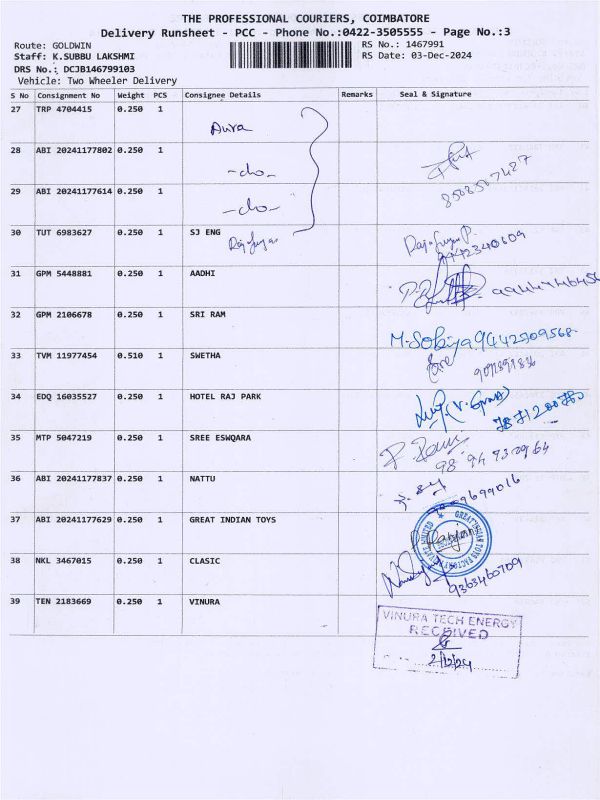 THE PROFESSIONAL COURIERS, COIMBATORE
Delivery Runsheet - PCC - Phone No.:0422-3505555 - Page No.:3
Route: GOLDWIN
RS No.: 1467991
Staff: K.SUBBU LAKSHMI
RS Date: 03-Dec-2024
DRS No.: DCJB146799103
Vehicle: Two Wheeler Delivery
S No Consignment No Weight PCS Consignee Details Remarks Seal & Signature
27 TRP 4704415 0.250 1
Aura
28 ABI 20241177802 0.250 1
-do-
29 ABI 20241177614 0.250 1
-do-
8508507487
30 TUT 6983627 0.250 1 SJ ENG
9442340609
31 GPM 5448881 0.250 1 AADHI
32 GPM 2106678 0.250 1 SRI RAM
M. Sobiya 9442509568
33 TVM 11977454 0.510 1 SWETHA
34 EDQ 16035527 0.250 1 HOTEL RAJ PARK
35 MTP 5047219 0.250 1 SREE ESWQARA
36 ABI 20241177837 0.250 1 NATTU
37 ABI 20241177629 0.250 1 GREAT INDIAN TOYS
38 NKL 3467015 0.250 1 CLASIC
9363460709
39 TEN 2183669 0.250 1 VINURA
VINURA TECH ENERGY
RECEIVED
2/12/24